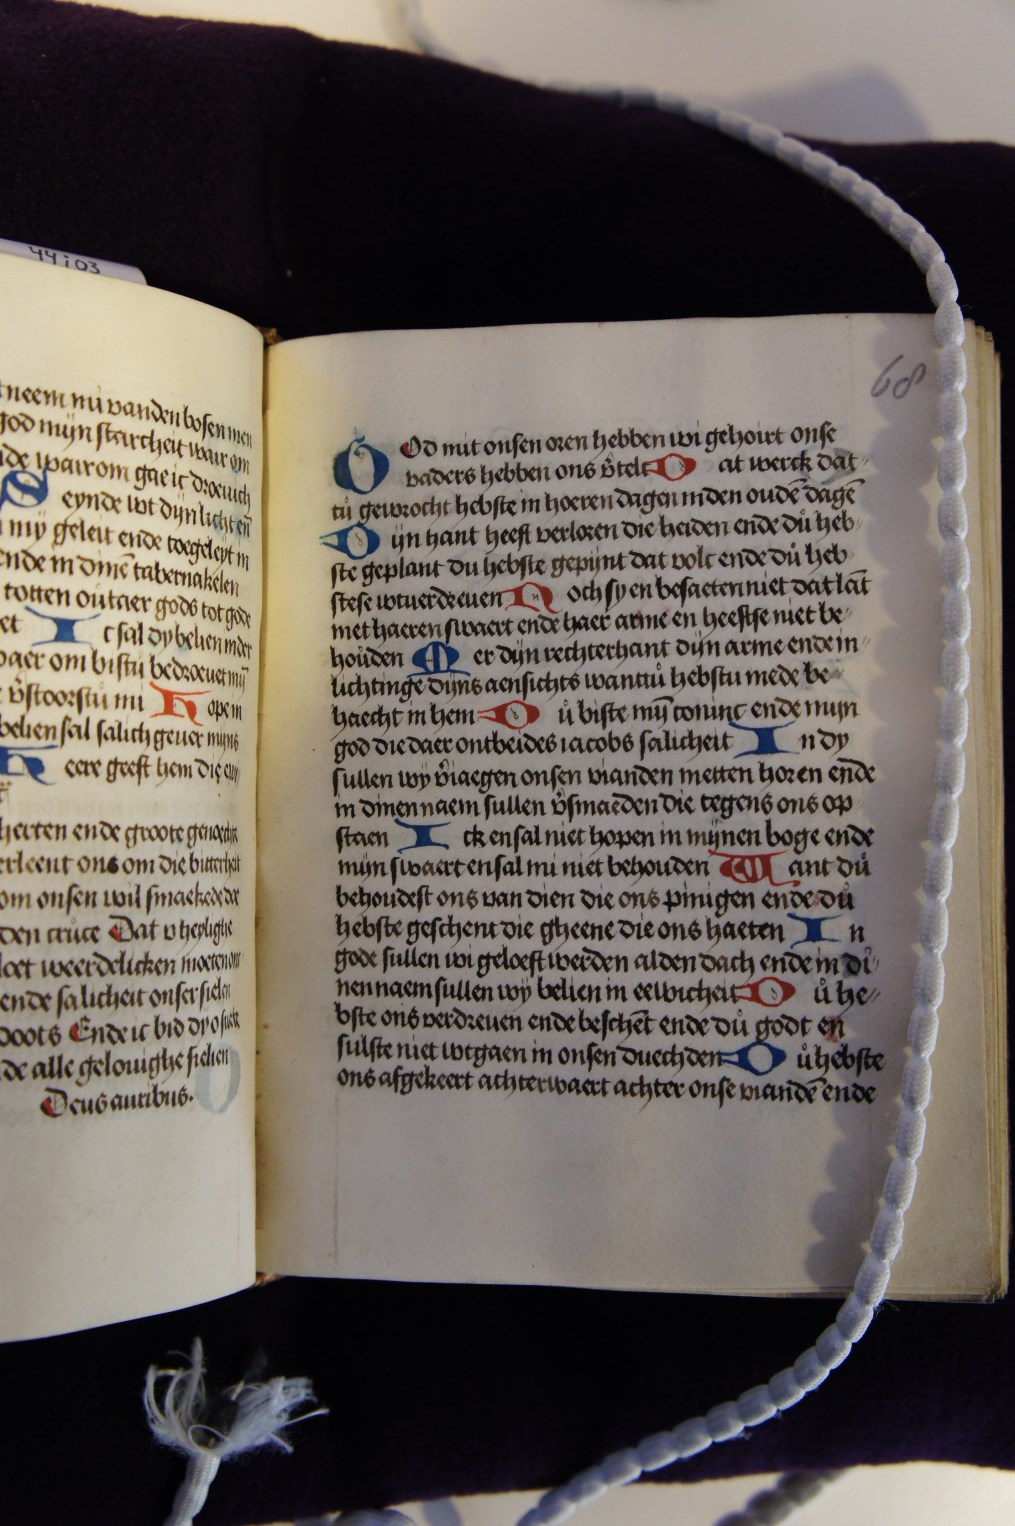 44:03
neem mi vanden bosen men
god mijn starcheit wair om
de wairom gae ic droevich
S eynde wt dijn licht eñ
my geleit ende toegeleyt in
ende in dinē tabernakelen
totten outaer gods tot gode
et I c sal dy belien inder
aer om bistu bedroevet mij
v̄stoorstu mi H ope in
belien sal salich gever mijns
H eere geeft hem die euw
herten ende groote genoechte
rleent ons om die bitterheit
om onsen wil smakede de
den cruce Dat v heylighe
loet weerdelicken moeten ons
ende salicheit onser sielen
doots Ende ic bid dy
de alle gelovighe sielen
Deus auribus.
68
G Od mit onsen oren hebben wi gehoirt onse
vaders hebben ons v̄telt D at werck dat
tů gewrocht hebste in hoeren dagen inden oudē dagē
D ijn hant heeft verloren die heiden ende dů heb
ste geplant du hebste gepijnt dat volc ende dů heb
stese wtverdreeven N och sy en besaeten niet dat lāt
met haeren swaert ende haer arme en heeftse niet be
houden M er dijn rechterhant dijn arme ende in
lichtinge dijns aensichts wanttů hebstu mede be
haecht in hem D ů biste mij coninc ende mijn
god die daer ontbeides iacobs salicheit I n dy
sullen wy v̄iaegen onsen vianden metten horen ende
in dinen naem sullen v̄smaeden die tegens ons op
staen I ck en sal niet hopen in mijnen boge ende
mijn swaert en sal mi niet behouden W ant dů
behoudest ons van dien die ons pinigen ende dů
hebste geschent die gheene die ons haeten I n
gode sullen wi geloeft werden al den dach ende in di
nen naem sullen wy belien in eewicheit D ů he
bste ons verdreven ende beschēt ende dů godt en
sulste niet wtgaen in onsen duechden D ů hebste
ons afgekeert achterwaert achter onse viandē ende